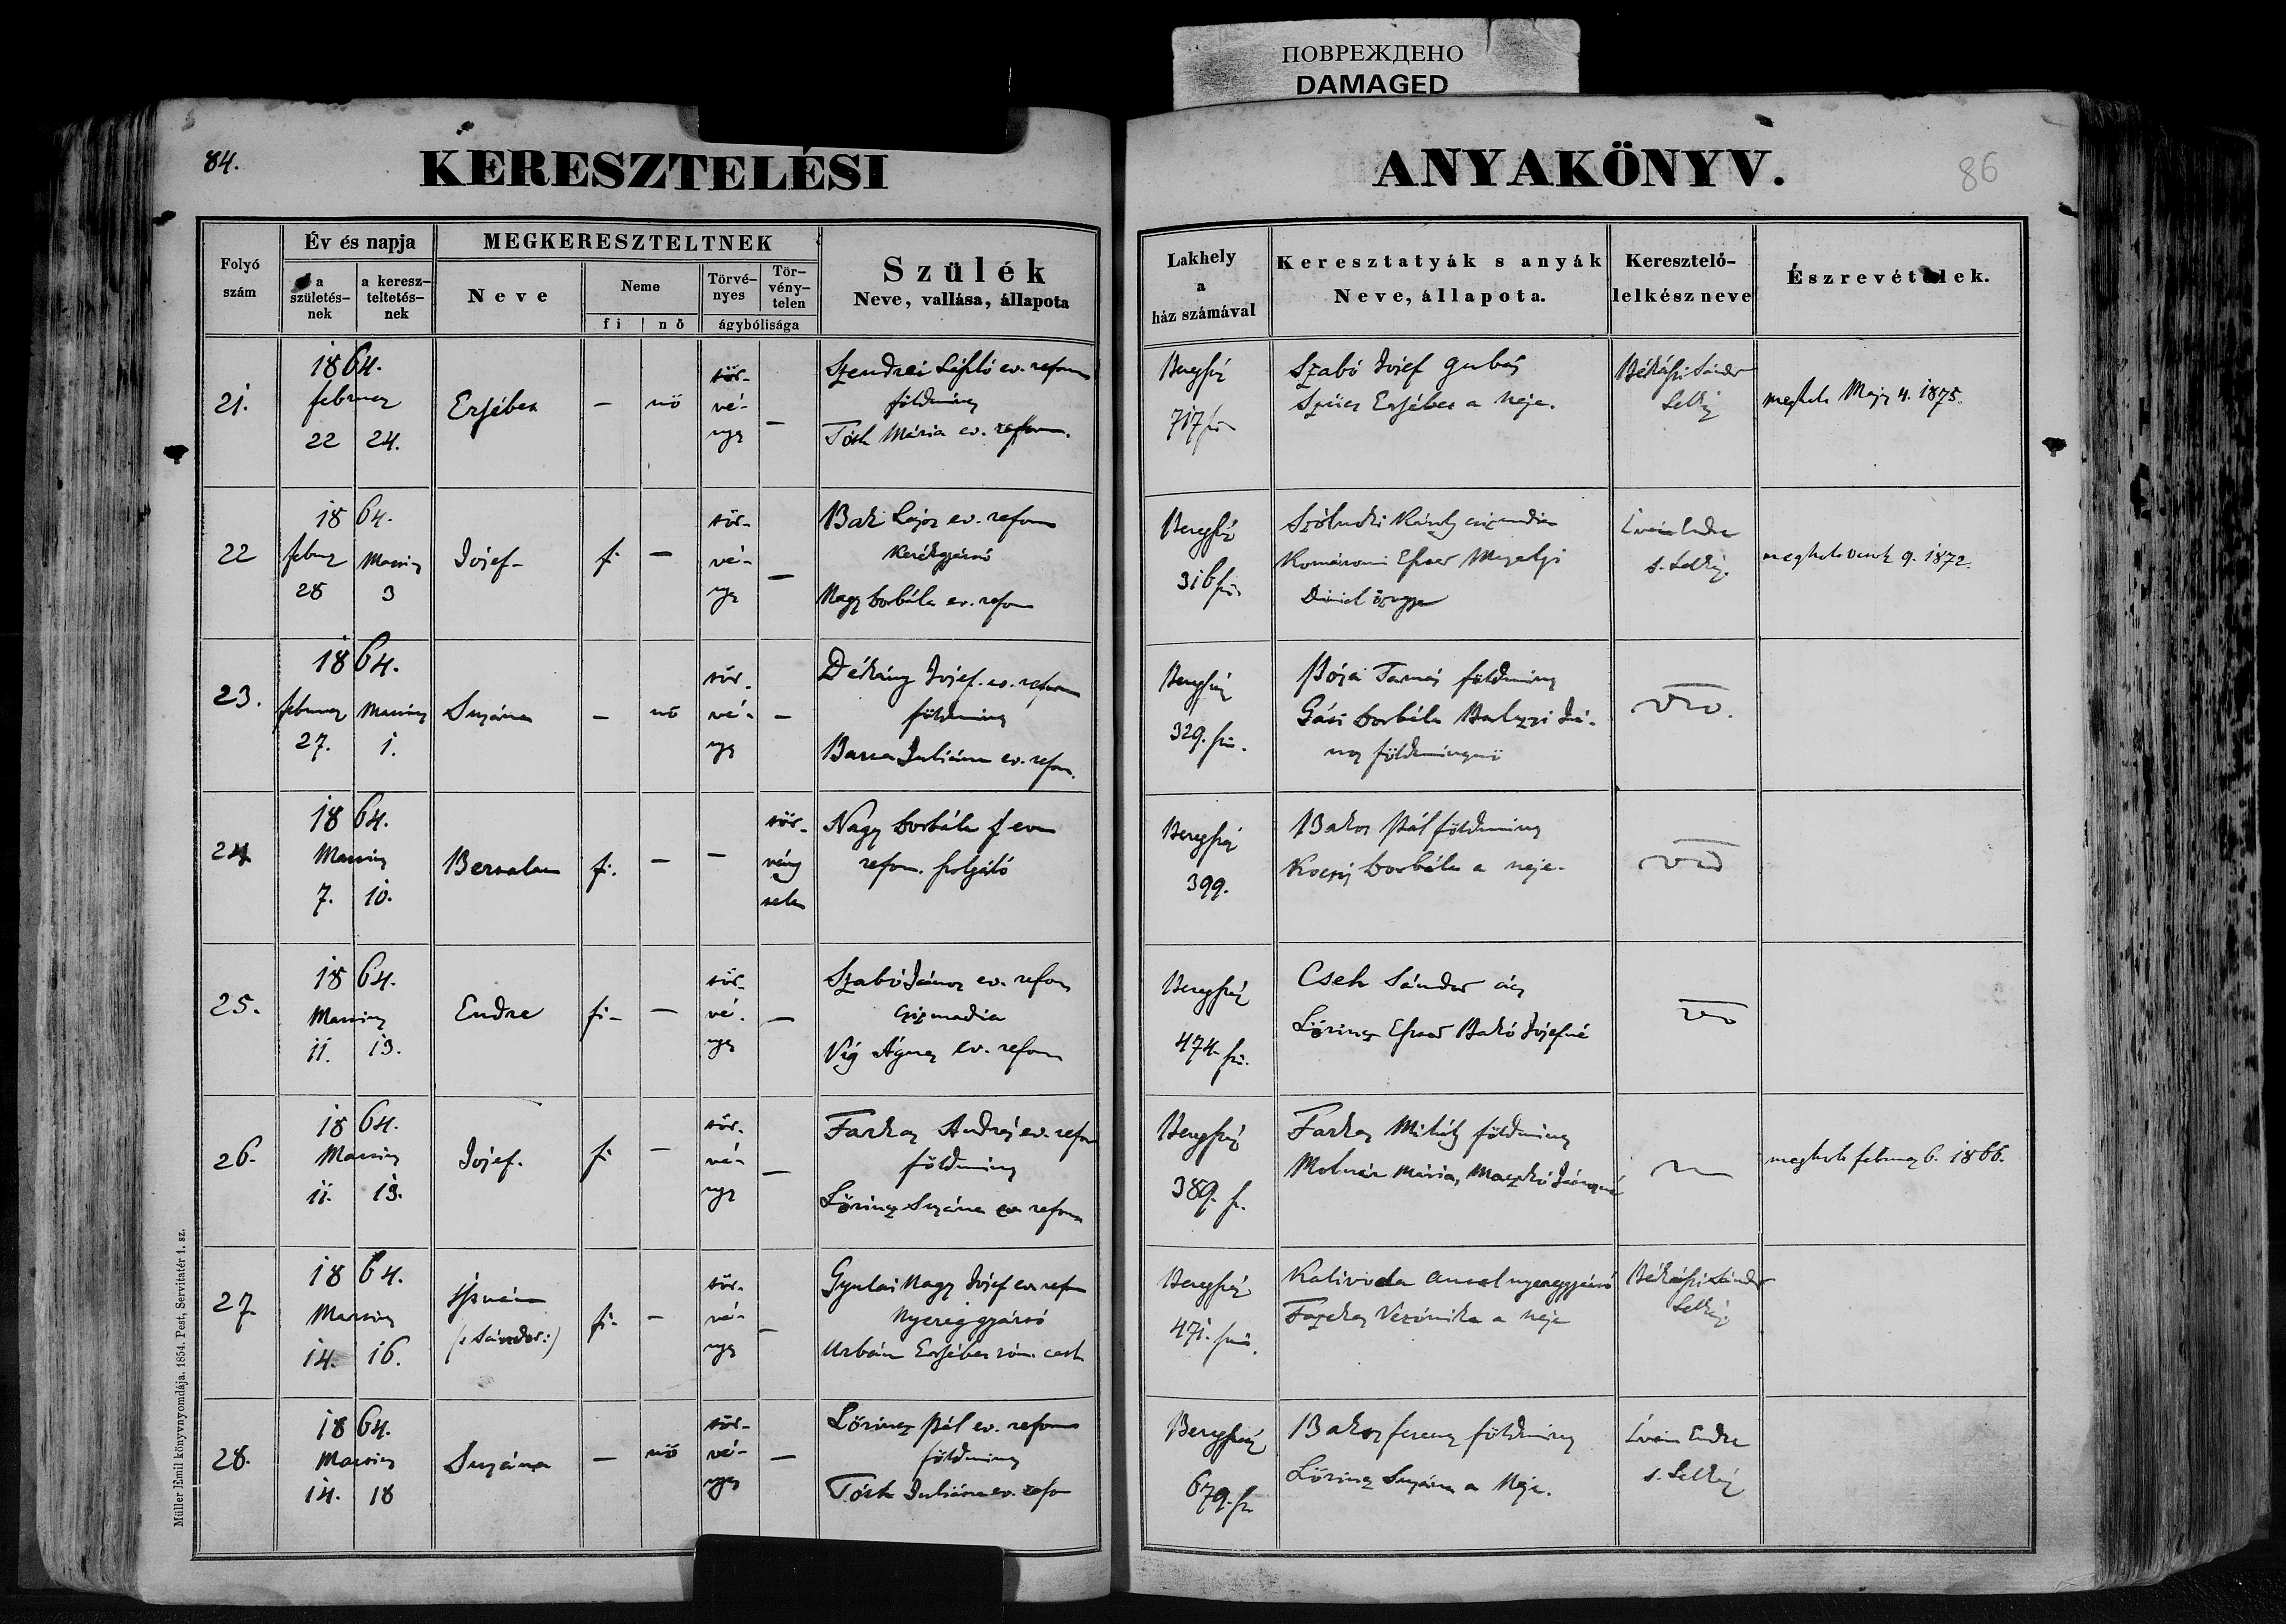 ПОВРЕЖДЕНО
DAMAGED
84.
KERESZTELÉSI
ANYAKÖNYV.
86
Folyó szám
Év és napja
a születés-nek
a keresz-teltetés-nek
MEGKERESZTELTNEK
Neve
Neme
fi
nő
Törvé-nyes
Tör-vény-telen
ágybólisága
Szülék
Neve, vallása, állapota
Lakhely
a
ház számával
Keresztatyák s anyák
Neve, állapota.
Keresztelő-
lelkész neve
Észrevételek.
21.
1864.
február
22 24.
Ersébet
— nő
tör-
vé-
nyes
—
Szendrei László ev. reform
földmíves
Tóth Mária ev. reform.
Beregszáz
717 sz
Szabó Josef gubás
Szücs Ersébet a neje.
Békássi Sándor
Lelkész
meghalt Majus 4. 1875.
22
1864.
február Martius
28 3
Josef
fi —
tör-
vé-
nyes
—
Bak Lajos ev. reform
Kerékgyártó
Nagy Borbála ev. reform
Beregszáz
316
Károly csizmadia
Komáromi Eszter
Dániel özvegye
Iván Endre
s. Lelkész
meghalt 9. 1872.
23.
1864.
február Martius
27. 1.
Susána
— nő
tör-
vé-
nyes
—
Dékány Josef ev. reform
földmíves
Barta Juliána ev. reform.
Beregszáz
329.
Pósa Tamás földmíves
Borbála
földmívesné
24
1864.
Martius
7. 10.
Bertalan
fi. —
—
tör-
vény
telen
Nagy Borbála ev.
reform. szolgáló
Beregszáz
399.
Bakos Pál földmíves
Kocsis Borbála a neje.
25.
1864.
Martius
11. 13.
Endre
fi —
tör-
vé-
nyes
—
Szabó János ev. reform
Csizmadia
Víg Ágnes ev. reform
Beregszáz
474.
Cseh Sándor ács
Lőrincz Eszter Bakó Josefné
26.
1864.
Martius
11. 13.
Josef.
fi —
tör-
vé-
nyes
—
Farkas András ev. reform
földmíves
Lőrincz Susána ev. reform
Beregszáz
389.
Farkas Mihály földmíves
Molnár Mária, Maczkó Jánosné
meghalt február 6. 1866.
27.
1864.
Martius
14. 16.
István
(: Sándor :)
fi. —
tör-
vé-
nyes
—
Gyulai Nagy Josef ev. reform
Nyereggyártó
Urbán Ersébet róm. cath
Beregszáz
471.
Kalivoda Antal nyereggyártó
Fazekas Verónika a neje
Békássi Sándor
Lelkész
28.
1864.
Martius
14. 18
Susána
— nő
tör-
vé-
nyes
—
Lőrincz Pál ev. reform
földmíves
Tóth Juliána ev. reform
Beregszáz
679.
Bakos ferencz földmíves
Lőrincz Susána a Neje.
Iván Endre
s. Lelkész
Müller Emil könyvnyomdája. 1854. Pest, Servitatér 1. sz.